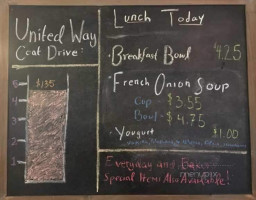 United Way
Coat Drive:
5
$135
4
3
2
1
Lunch Today
Breakfast Bowl $4.25
French Onion Soup
Cup $3.55
Bowl $4.75
Yougurt $1.00
Everyday and
Special Item Also Available!